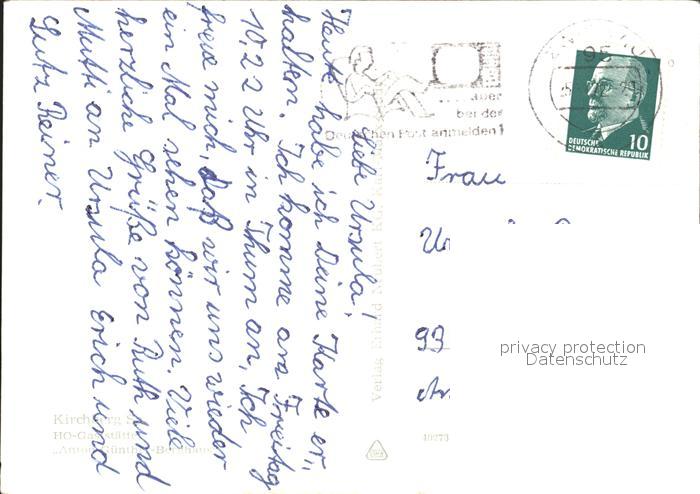 Liebe Ursula!
Heute habe ich Deine Karte er„
halten. Ich komme am Freitag
10,22 Uhr in Thum an. Ich
freue mich, daß wir uns wieder
ein Mal sehen können. Viele
herzliche Grüße von Ruth und
Mutti an Ursula Erich und
Lutz Reiner.
Frau
93
bei der
Deutschen Post anmelden!
95
DEUTSCHE
DEMOKRATISCHE REPUBLIK
10
privacy protection
Datenschutz
Verlag Erhard Neubert
Kirchberg
HO-Gaststätte
„Anton-Günther-Berghaus"